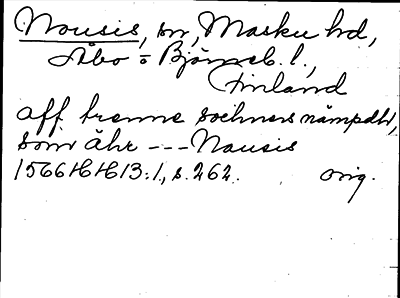 Nousis, sn, Masku hd,
Åbo o Björneb. l.,
Finland
aff trenne sochners nämpdh,
som ähr --- Nousis
1566 16/6 13:1, s. 262. orig.